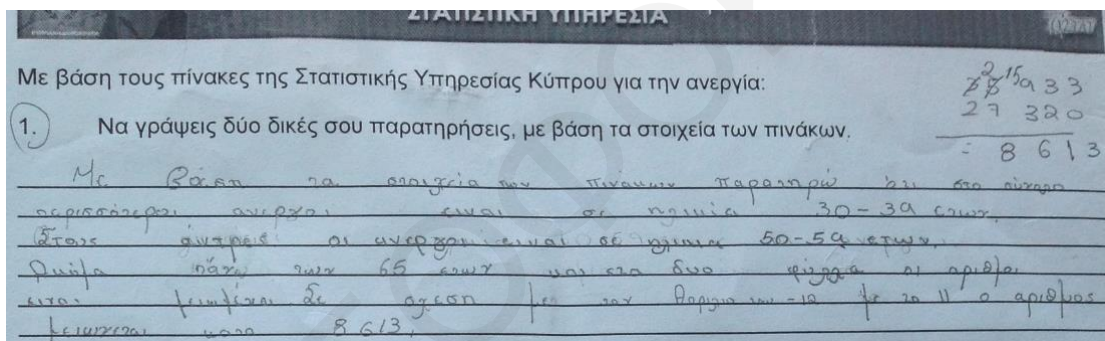 ΣΤΑΤΙΣΤΙΚΗ ΥΠΗΡΕΣΙΑ
Με βάση τους πίνακες της Στατιστικής Υπηρεσίας Κύπρου για την ανεργία:
35933
27 320
= 8 613
1. Να γράψεις δύο δικές σου παρατηρήσεις, με βάση τα στοιχεία των πινάκων.
Με βάση τα στοιχεία των πινάκων παρατηρώ ότι στο
περισσότεροι άνεργοι είναι σε ηλικία 30-39 ετών.
Στους άντρες οι άνεργοι είναι σε ηλικία 50-59 ετών.
πάνω των 65 ετών και στα δυο φύλλα οι αριθμοί
είναι σε σχέση με τον -12 με το 11 ο αριθμός
μειώνεται κατά 8613.